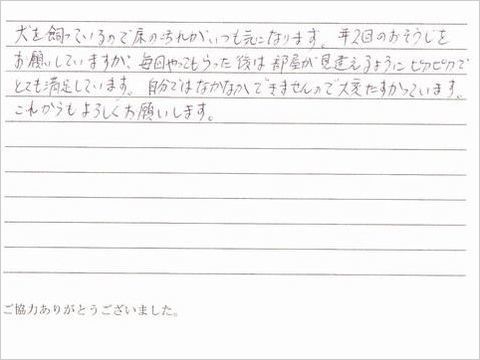 犬を飼っているので床の汚れがいつも元になります。年2回のおそうじを
お願いしていますが、毎回やってもらった後は部屋が見違えるようにピカピカで
とても満足しています。自分ではなかなかできませんので大変たすかっています。
これからもよろしくお願いします。
ご協力ありがとうございました。